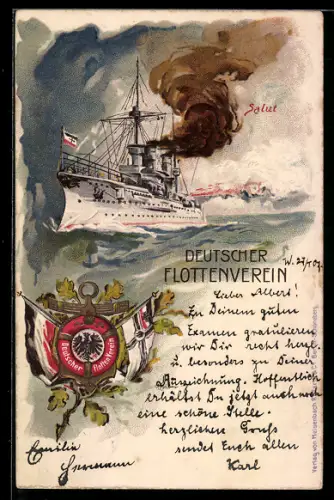 Salut
DEUTSCHER
FLOTTENVEREIN
W. 27/5 07.
Lieber Albert!
Zu Deinem guten
Examen gratulieren
wir Dir recht herzl.
u. besonders zu Deiner
Auszeichnung. Hoffentlich
erhältst Du jetzt auch noch
eine schöne Stelle.
herzlichen Gruss
sendet Euch allen
Karl
Emilie
Hermann
Deutscher Flottenverein
Verlag von